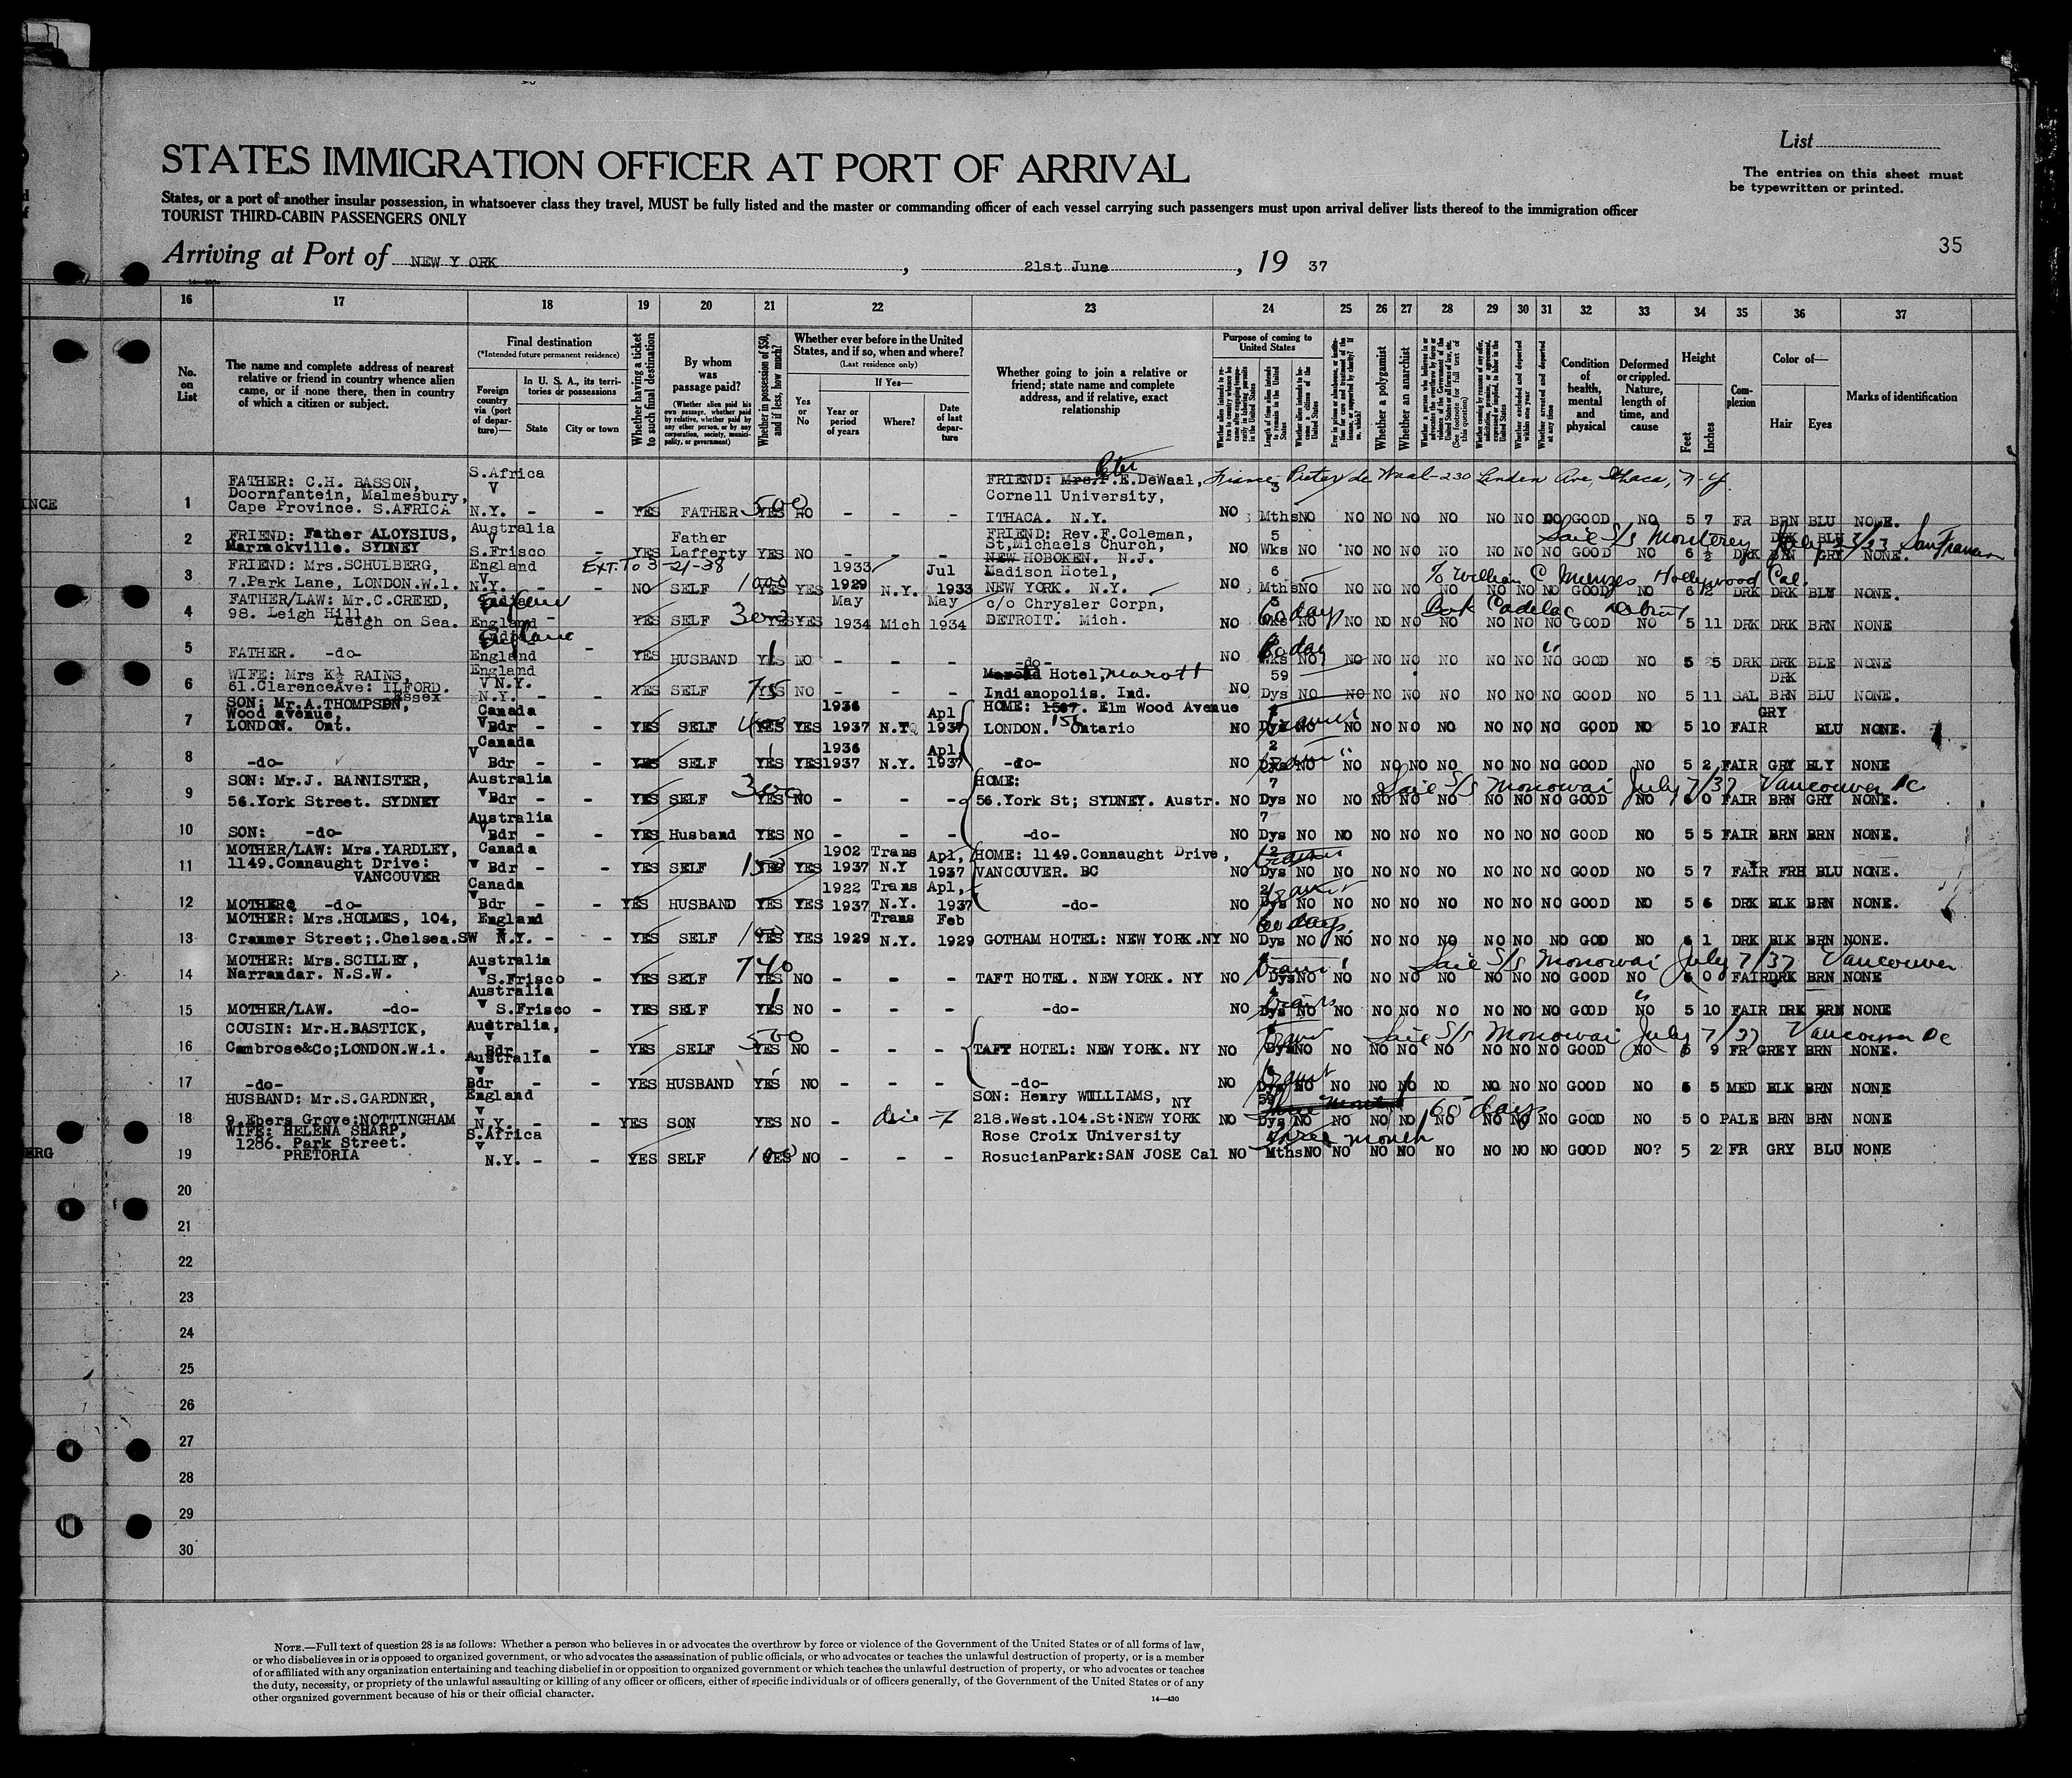 List
STATES IMMIGRATION OFFICER AT PORT OF ARRIVAL
The entries on this sheet must
be typewritten or printed.
States, or a port of another insular possession, in whatsoever class they travel, MUST be fully listed and the master or commanding officer of each vessel carrying such passengers must upon arrival deliver lists thereof to the immigration officer
TOURIST THIRD-CABIN PASSENGERS ONLY
35
Arriving at Port of NEW Y ORK, 21st June, 19 37
16 17 18 19 20 21 22 23 24 25 26 27 28 29 30 31 32 33 34 35 36 37
No. on List
The name and complete address of nearest relative or friend in country whence alien came, or if none there, then in country of which a citizen or subject.
Final destination
(*Intended future permanent residence)
Foreign country via (port of departure)—
In U. S. A., its territories or possessions
State
City or town
Whether having a ticket to such final destination
By whom was passage paid?
(Whether alien paid his own passage, whether paid by relative, whether paid by any other person, or by any corporation, society, municipality, or government)
Whether in possession of $50, and if less, how much?
Whether ever before in the United States, and if so, when and where?
(Last residence only)
If Yes—
Yes or No
Year or period of years
Where?
Date of last departure
Whether going to join a relative or friend; state name and complete address, and if relative, exact relationship
Purpose of coming to United States
Length of time alien intends to remain in the United States
Whether alien intends to become a citizen of the United States
Whether a polygamist
Whether an anarchist
Whether excluded and deported within one year
Whether arrested and deported at any time
Condition of health, mental and physical
Deformed or crippled. Nature, length of time, and cause
Height
Feet
Inches
Complexion
Color of—
Hair
Eyes
Marks of identification
1 FATHER: C.H. BASSON, Doornfantein, Malmesbury, Cape Province. S.AFRICA S.Africa V N.Y. - - YES FATHER 500 YES NO - - - FRIEND: Mrs.P.E.DeWaal, Cornell University, ITHACA. N.Y. Pieter de Waal-230 Linden Ave, Ithaca, N.Y. NO 3 Mths NO NO NO NO NO NO NO NO GOOD NO 5 7 FR BRN BLU NONE.
2 FRIEND: Father ALOYSIUS, Marrackville. SYDNEY Australia V S.Frisco - YES Father Lafferty YES NO - - - FRIEND: Rev.F.Coleman, St,Michaels Church, NEW HOBOKEN. N.J. NO 5 Wks NO NO NO NO NO NO NO NO GOOD NO 6 ½ DRK BRN GRY NONE. Sail S/s Monterey San Francisco
3 FRIEND: Mrs.SCHULBERG, 7.Park Lane, LONDON.W.1. England V N.Y. Ext. To 3-21-38 - NO SELF 1000 YES YES 1933 1929 N.Y. Jul 1933 Madison Hotel, NEW YORK. N.Y. NO 6 Mths NO NO NO NO NO NO NO NO GOOD NO 6 2 DRK DRK BLU NONE. To William C Menzies Hollywood Cal.
4 FATHER/LAW: Mr.C.CREED, 98. Leigh Hill, Leigh on Sea. England - YES SELF 300 YES YES May 1934 Mich May 1934 c/o Chrysler Corpn, DETROIT. Mich. NO 60 days Wks NO NO NO NO NO NO NO NO GOOD NO 5 11 DRK DRK BRN NONE Book Cadilac Detroit
5 FATHER. -do- England - YES HUSBAND YES NO - - - -do- NO 60 day Wks NO NO NO NO NO NO NO NO GOOD NO 5 5 DRK DRK BLE NONE
6 WIFE: Mrs K½ RAINS, 61.ClarenceAve: ILFORD. Essex England V N.Y. N.Y. - - YES SELF 75 YES NO - - - Hotel, Marott Indianopolis. Ind. NO 59 Dys NO NO NO NO NO NO NO NO GOOD NO 5 11 SAL DRK BRN BLU NONE.
7 SON: Mr.A.THOMPSON, Wood avenue, LONDON. Ont. Canada V Bdr - - YES SELF 400 YES YES 1936 1937 N.Y. Apl 1937 HOME: 1567. Elm Wood Avenue LONDON. 156 Ontario NO Dys NO NO NO NO NO NO NO NO GOOD NO 5 10 FAIR GRY BLU NONE.
8 -do- Canada V Bdr - - YES SELF YES YES 1936 1937 N.Y. Apl, 1937 -do- NO 2 Dys NO NO NO NO NO NO NO NO GOOD NO 5 2 FAIR GRY BLY NONE
9 SON: Mr.J. BANNISTER, 56.York Street. SYDNEY Australia V Bdr - - YES SELF 300 YES NO - - - HOME: 56.York St; SYDNEY. Austr. NO 7 Dys NO NO NO NO NO NO NO NO GOOD NO 6 0 FAIR BRN GRY NONE. Sail S/s Monowai July 7/37 Vancouver Bc
10 SON: -do- Australia V Bdr - - YES Husband YES NO - - - -do- NO 7 Dys NO NO NO NO NO NO NO NO GOOD NO 5 5 FAIR BRN BRN NONE.
11 MOTHER/LAW: Mrs.YARDLEY, 1149.Connaught Drive: VANCOUVER Canada V Bdr - - YES SELF 150 YES YES 1902 1937 Trans N.Y Apl, 1937 HOME: 1149.Connaught Drive, VANCOUVER. BC NO 2 Dys NO NO NO NO NO NO NO NO GOOD NO 5 7 FAIR FRH BLU NONE.
12 MOTHER -do- Canada V Bdr - - YES HUSBAND YES YES 1922 1937 Trans N.Y. Apl, 1937 -do- NO 2 Dys NO NO NO NO NO NO NO NO GOOD NO 5 6 DRK BLK BRN NONE.
13 MOTHER: Mrs.HOLMES, 104, Cranmer Street;.Chelsea.SW England V N.Y. - - YES SELF 100 YES YES 1929 Trans N.Y. Feb 1929 GOTHAM HOTEL: NEW YORK.NY NO 60 days. Dys NO NO NO NO NO NO NO NO GOD NO 6 1 DRK BLK BRN NONE.
14 MOTHER: Mrs.SCILLEY, Narrandar. N.S.W. Australia V S.Frisco - YES SELF 740 YES NO - - - TAFT HOTEL. NEW YORK. NY NO Dys NO NO NO NO NO NO NO NO GOOD NO 6 0 FAIR DRK BRN NONE Sail S/s Monowai July 7/37 Vancouver
15 MOTHER/LAW. -do- Australia V S.Frisco - YES SELF YES NO - - - -do- NO 4 Dys NO NO NO NO NO NO NO NO GOOD NO 5 10 FAIR DRK BRN NONE
16 COUSIN: Mr.H.BASTICK, Cambrose&Co;LONDON.W.i. Australia, V Bdr - - YES SELF 500 YES NO - - - TAFT HOTEL: NEW YORK. NY NO Dys NO NO NO NO NO NO NO NO GOOD NO 5 9 FR GREY BRN NONE. Sail S/s Monowai July 7/37 Vancouver Bc
17 -do- Australia V Bdr - - YES HUSBAND YES NO - - - -do- NO Dys NO NO NO NO NO NO NO NO GOOD NO 6 5 MED BLK BRN NONE
18 HUSBAND: Mr.S.GARDNER, 9.Ebers Grove:NOTTINGHAM England V N.Y. - - YES SON YES NO - - SON: Henry WILLIAMS, NY 218.West.104.St:NEW YORK NO 59 Dys 60 days NO NO NO NO NO NO NO NO GOOD NO 5 0 PALE BRN BRN NONE
19 WIFE: HELENA SHARP, 1286. Park Street. PRETORIA S.Africa V N.Y. - - YES SELF 100 YES NO - - - Rose Croix University RosucianPark:SAN JOSE Cal NO three month Mths NO NO NO NO NO NO NO NO GOOD NO? 5 2 FR GRY BLU NONE
20
21
22
23
24
25
26
27
28
29
30
NOTE.—Full text of question 28 is as follows: Whether a person who believes in or advocates the overthrow by force or violence of the Government of the United States or of all forms of law,
or who disbelieves in or is opposed to organized government, or who advocates the assassination of public officials, or who advocates or teaches the unlawful destruction of property, or is a member
of or affiliated with any organization entertaining and teaching disbelief in or opposition to organized government or which teaches the unlawful destruction of property, or who advocates or teaches
the duty, necessity, or propriety of the unlawful assaulting or killing of any officer or officers, either of specific individuals or of officers generally, of the Government of the United States or of any
other organized government because of his or their official character.
14—430